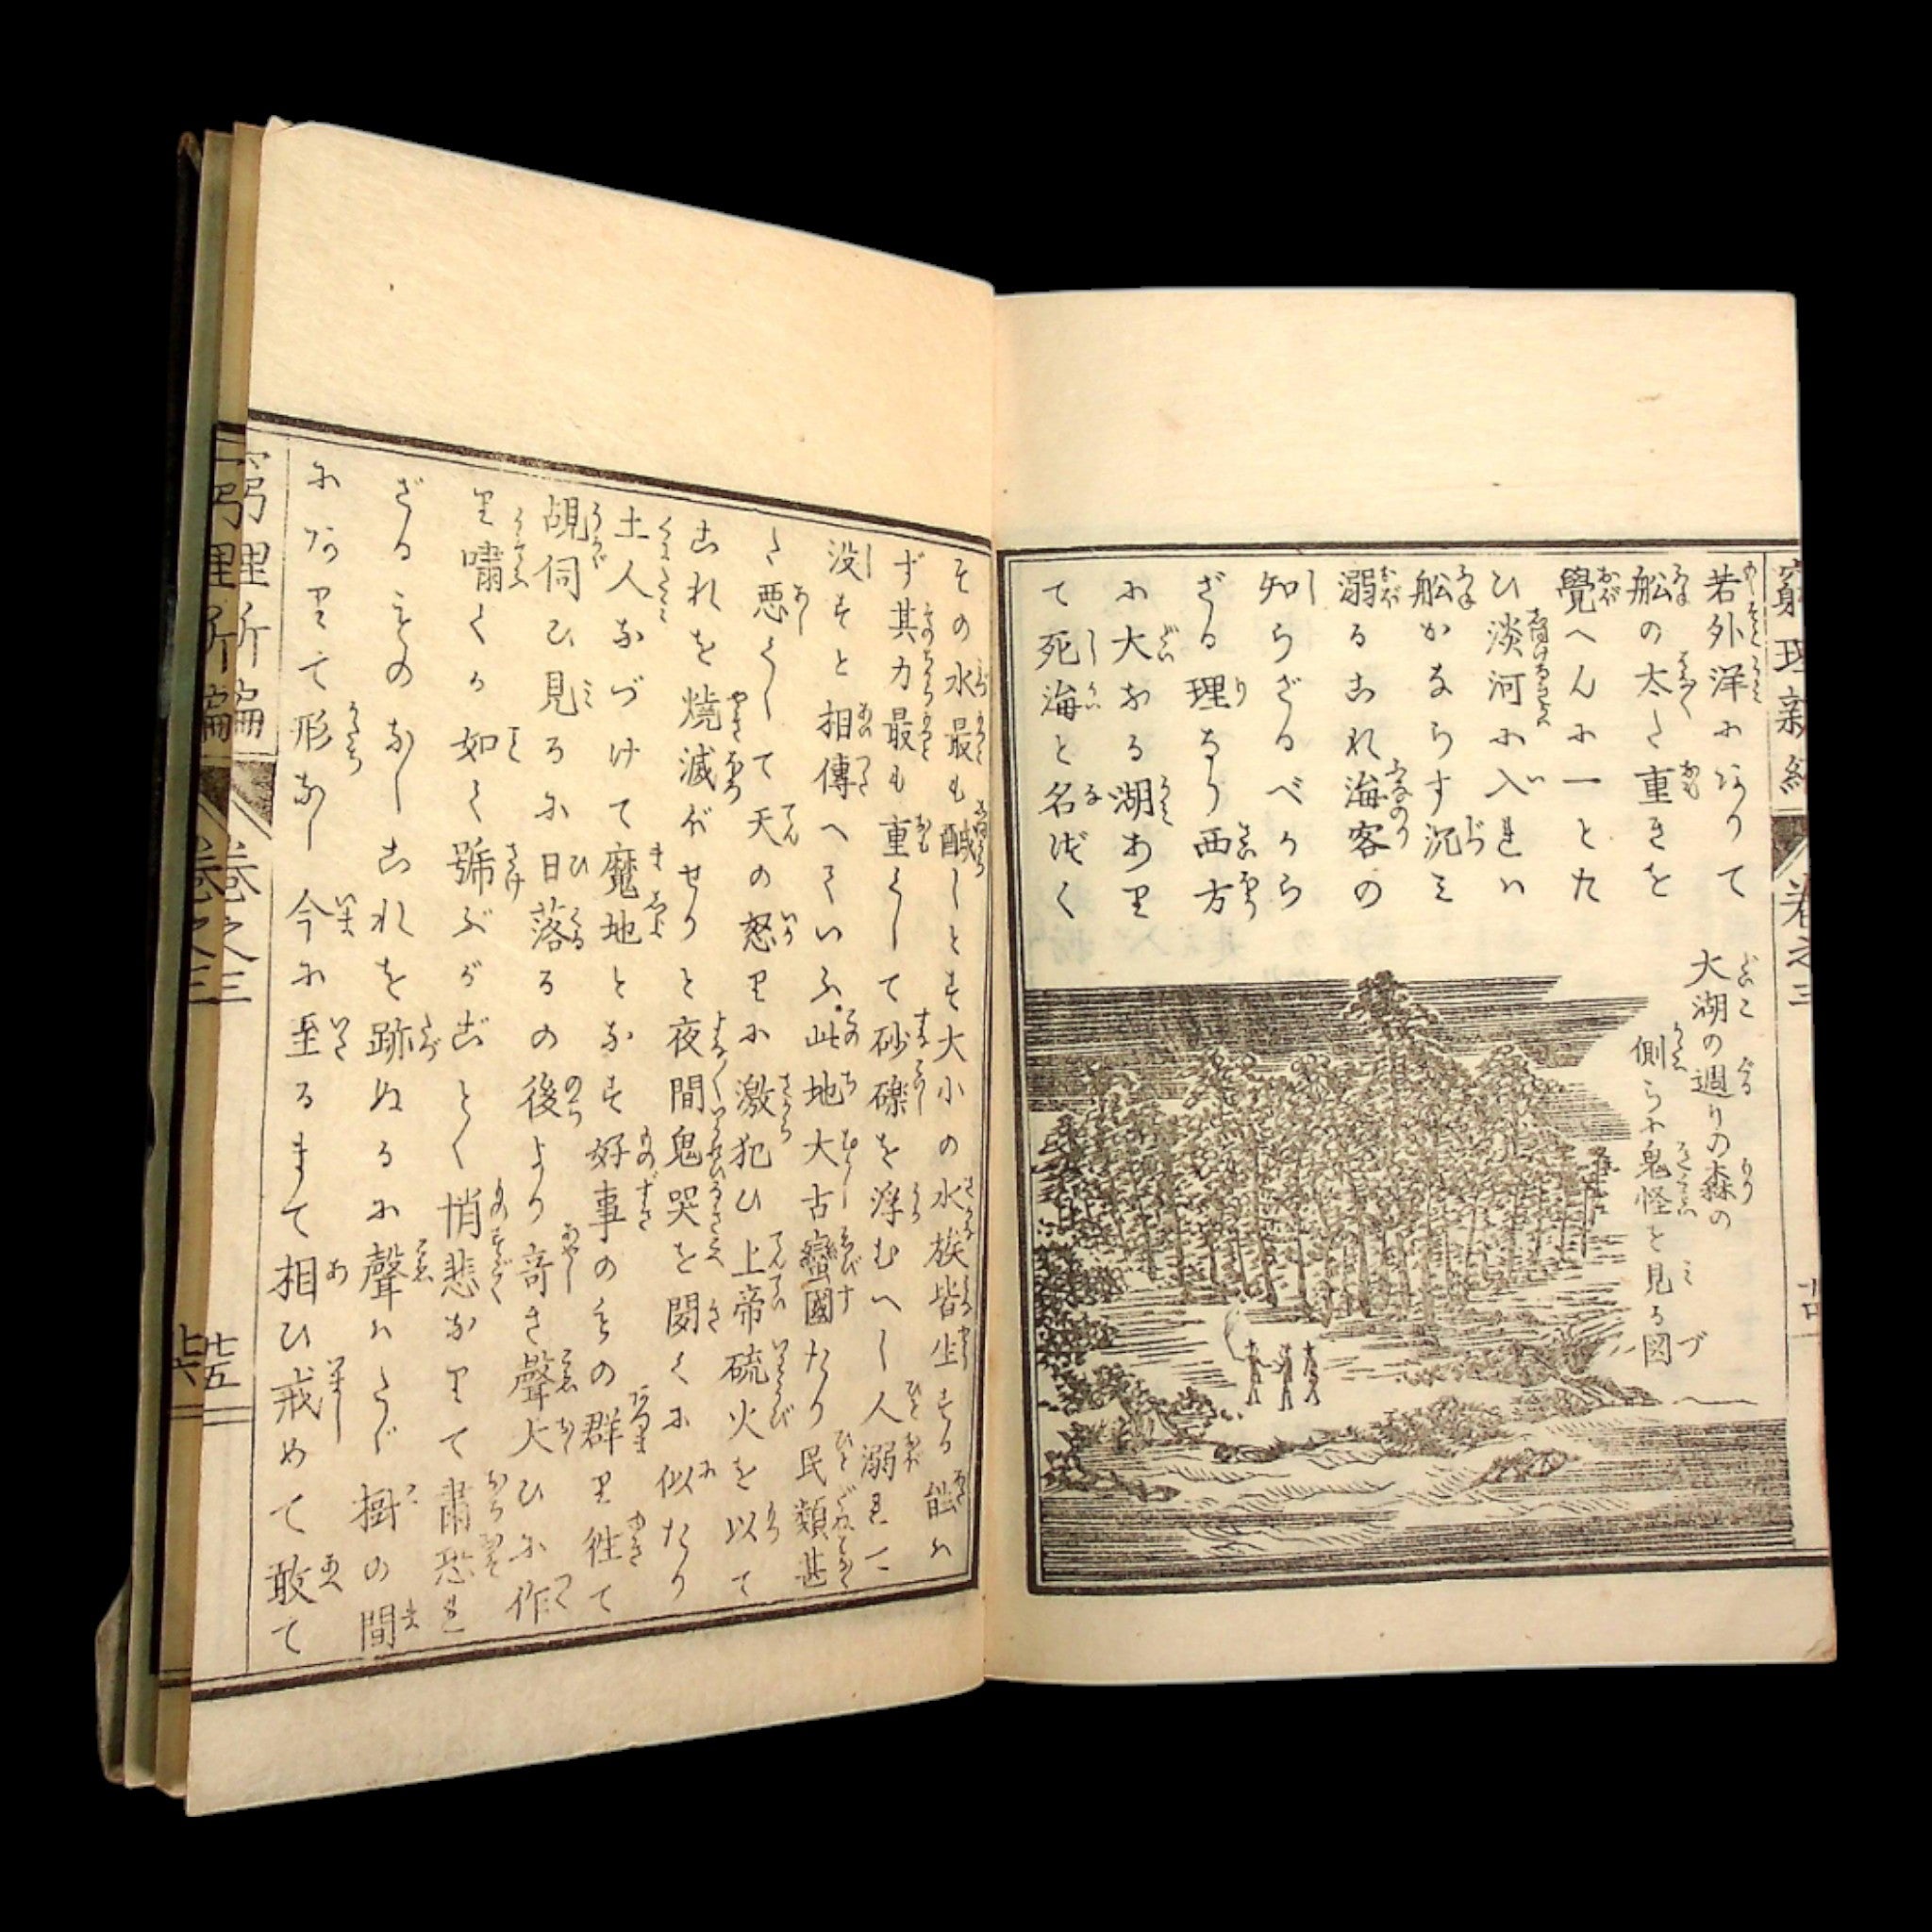 窮理新編
巻之三
若外洋にありて
舩の太た重きを
覺へんに一とた
ひ淡河に入れハ
舩かならす沉み
溺るこれ海客の
知らざるべから
ざる理なり西方
に大なる湖あり
て死海と名づく
大湖の週りの森の
側らに鬼怪を見る図
その水最も鹹しとす大小の水族皆生する能ハ
ず其力最も重くして砂礫を浮むへし人溺れ亡
没すと相傳へていふ此地大古蠻國たり民類甚
た悪くして天の怒りに激犯ひ上帝硫火を以て
これを燒滅ぼせりと夜間鬼哭を聞くに似たり
土人なづけて魔地となす好事のもの群り徃て
覘伺ひ見るに日落るの後より奇き聲大ひに作
り嘯くか如く號ぶがごとく悄悲なりて肅恐れ
ざるものなしこれを跡ぬるに聲ハたゞ樹の間
にありて形なし今に至るまて相ひ戒めて敢て
窮理新編
巻之三
十五